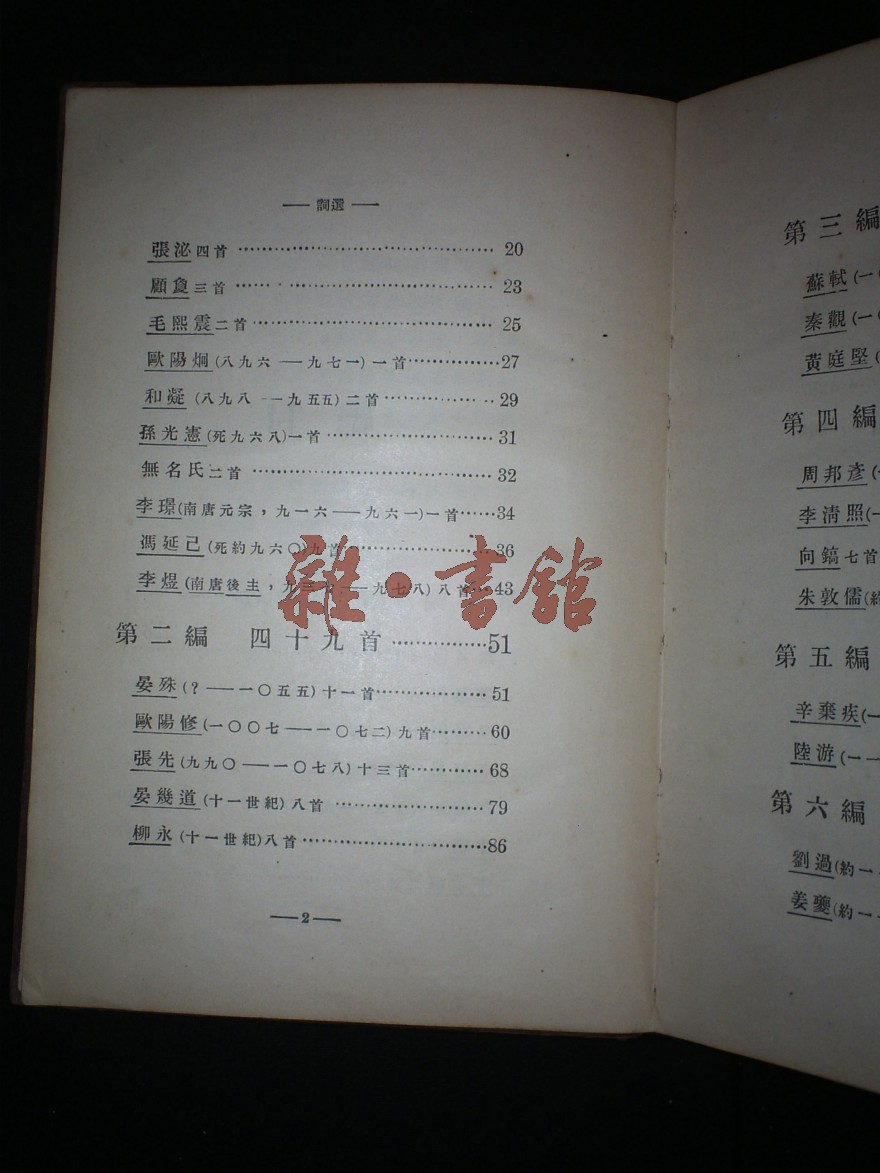 詞選
張泌四首 20
顧敻三首 23
毛熙震二首 25
歐陽炯(八九六—九七一)一首 27
和凝(八九八—九五五)二首 29
孫光憲(死九六八)一首 31
無名氏二首 32
李璟(南唐元宗，九一六—九六一)一首 34
馮延己(死約九六〇)九首 36
李煜(南唐後主，九三七—九七八)八首 43
第二編 四十九首 51
晏殊(?—一〇五五)十一首 51
歐陽修(一〇〇七—一〇七二)九首 60
張先(九九〇—一〇七八)十三首 68
晏幾道(十一世紀)八首 79
柳永(十一世紀)八首 86
—2—
雜·書館
第三編
蘇軾(一〇
秦觀(一〇
黃庭堅(
第四編
周邦彥(一
李清照(一
向鎬七首
朱敦儒(約
第五編
辛棄疾(一
陸游(一一
第六編
劉過(約一
姜夔(約一